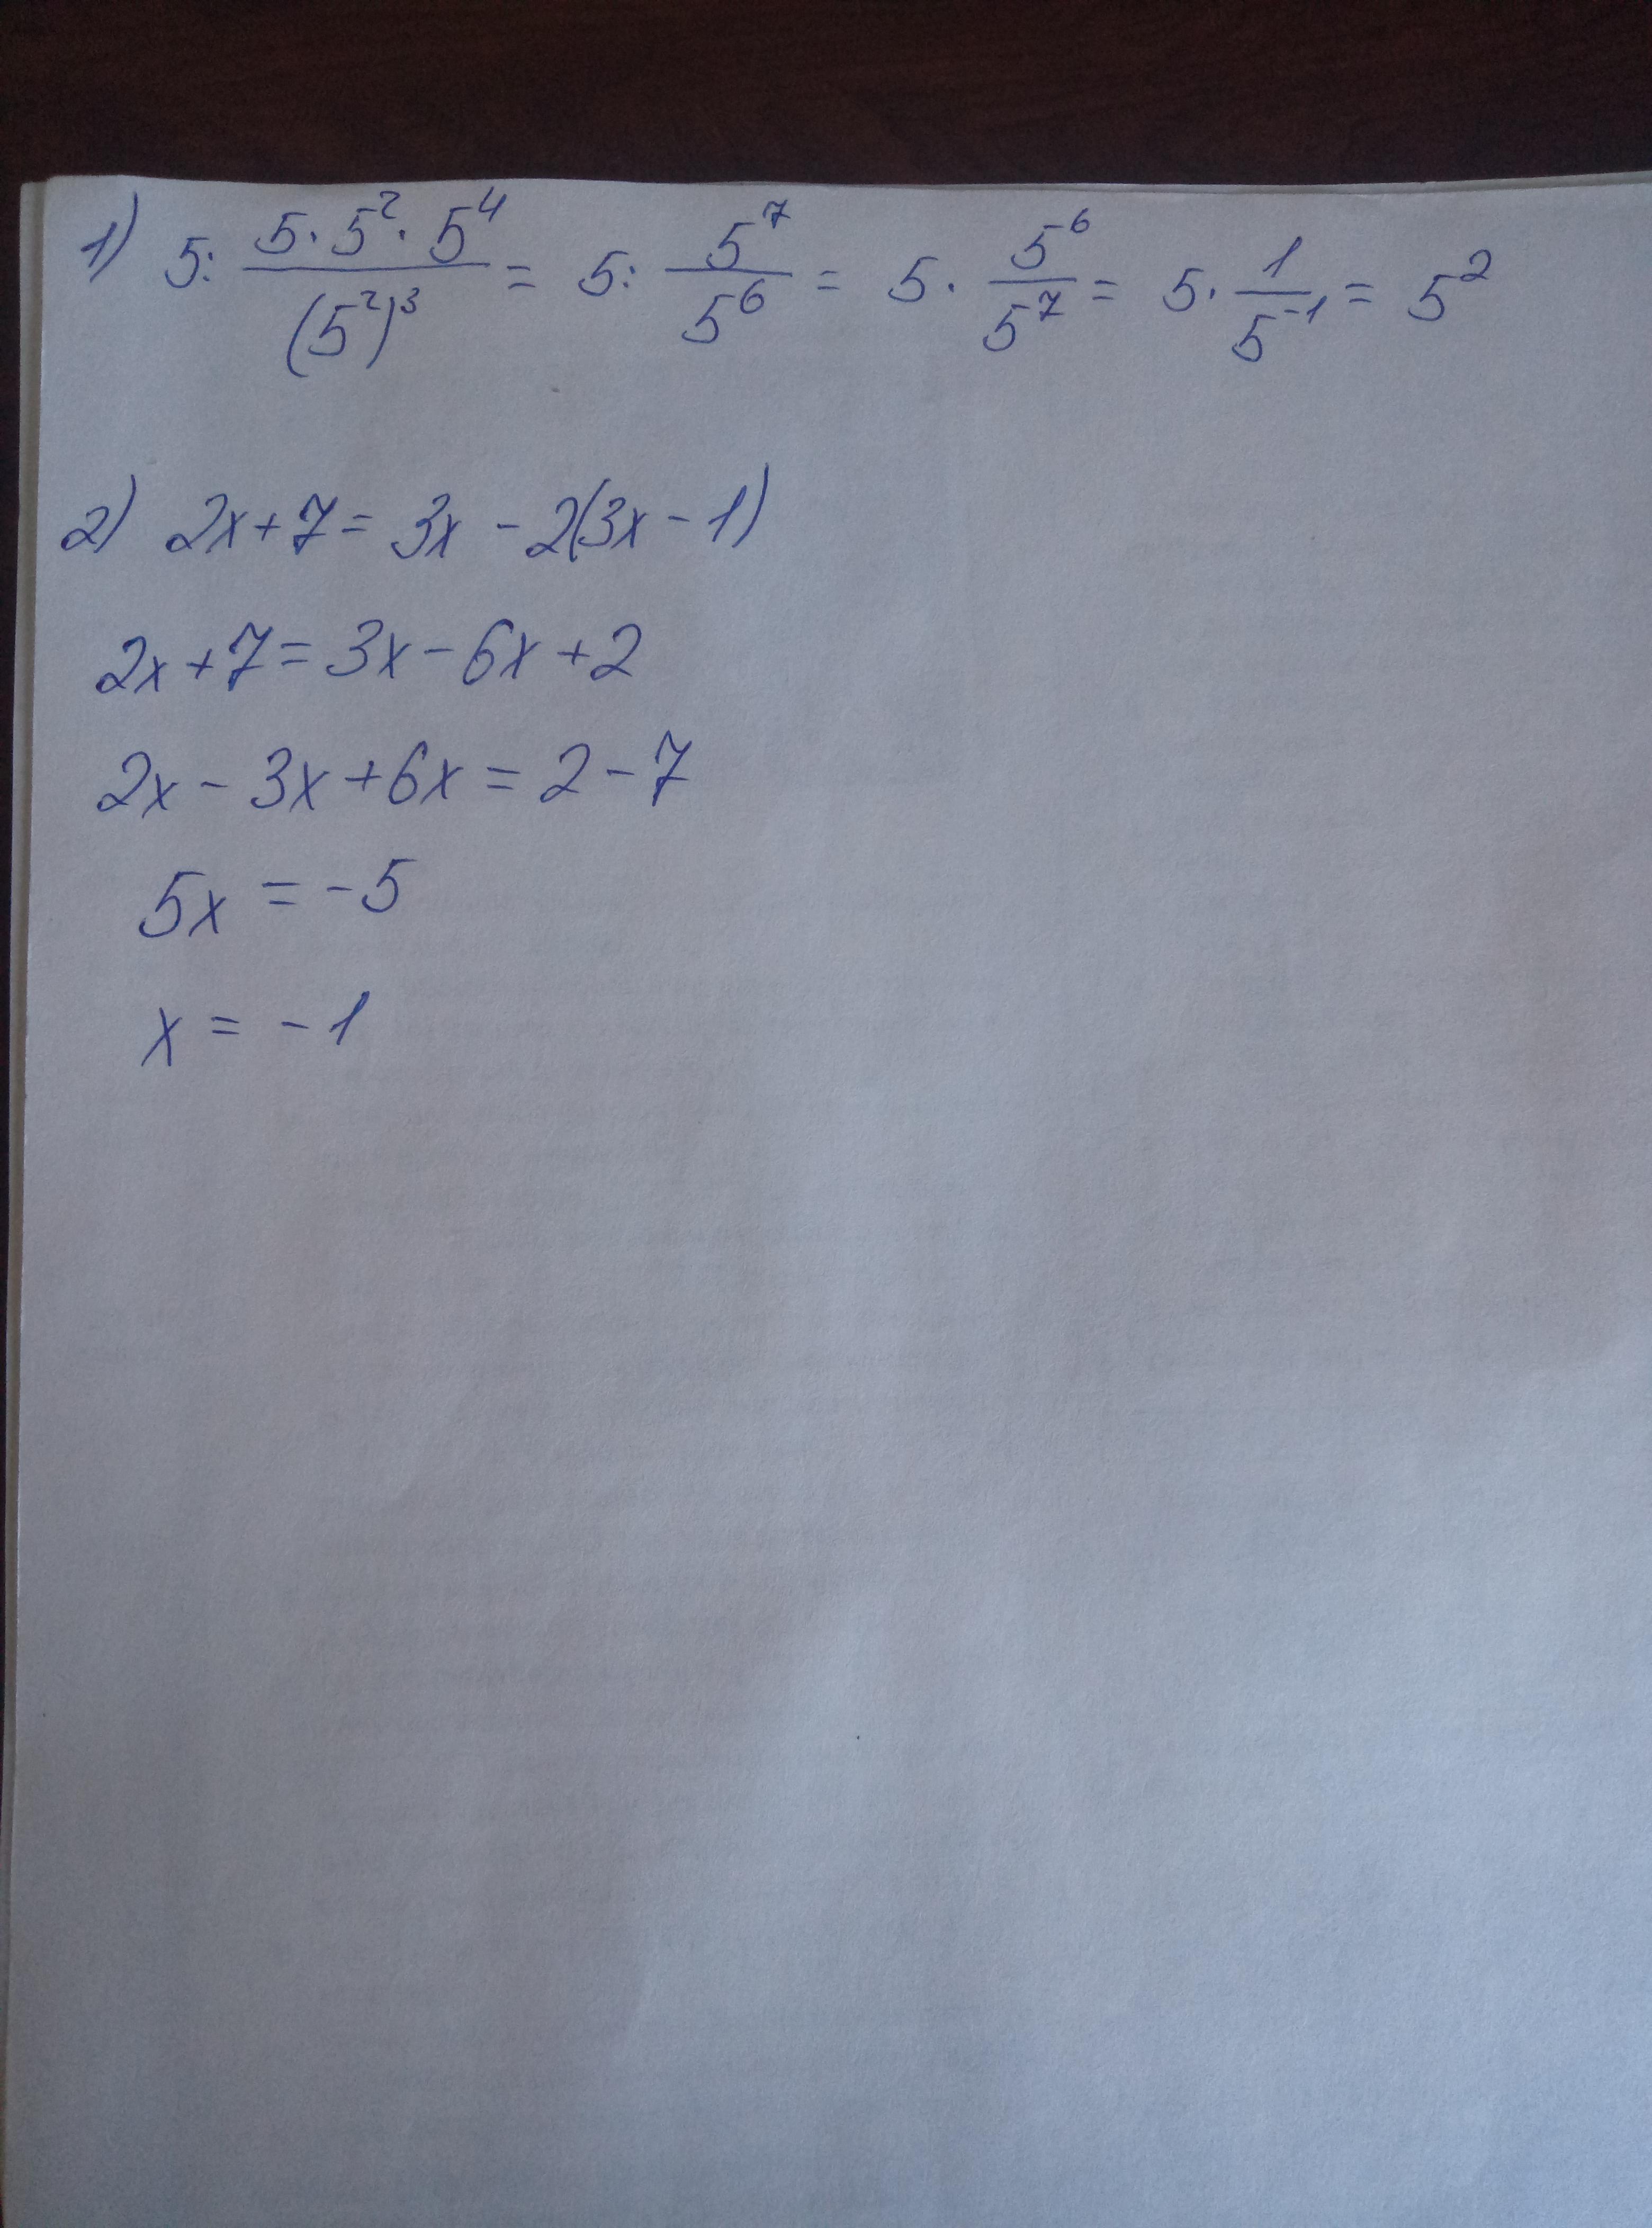 1) 5: (5·5²·5⁴)/(5²)³ = 5: 5⁷/5⁶ = 5 · 5⁶/5⁷ = 5 · 1/5⁻¹ = 5²
2) 2x+7 = 3x - 2(3x - 1)
2x+7 = 3x - 6x + 2
2x - 3x + 6x = 2 - 7
5x = -5
x = -1